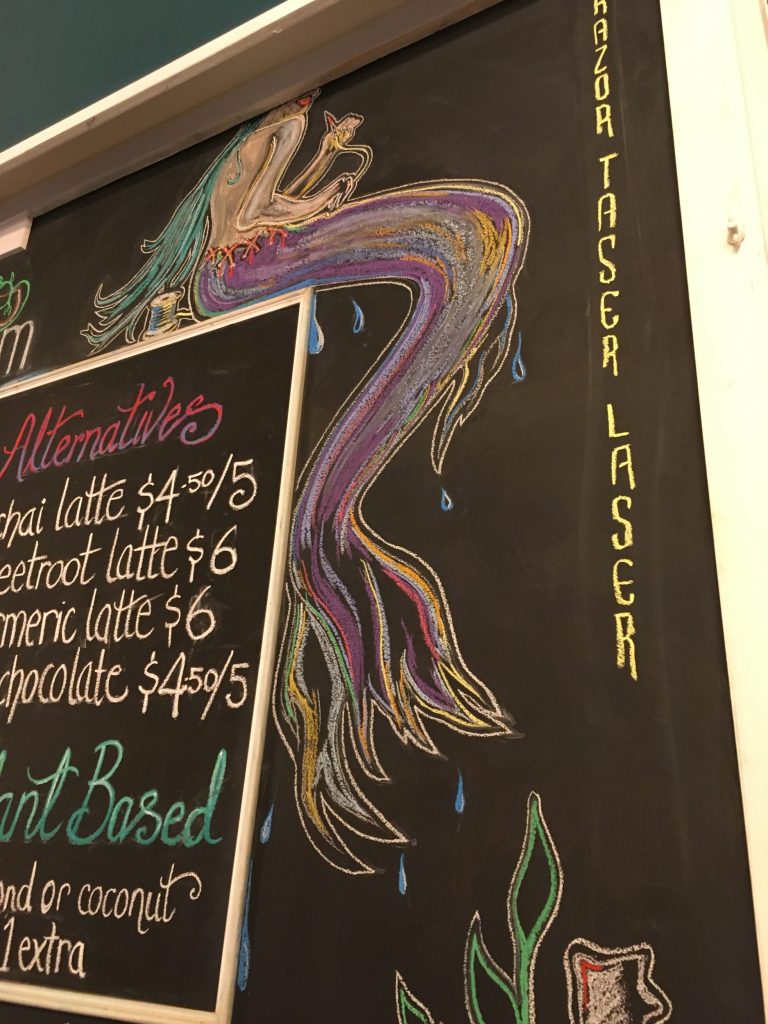 RAZOR TASER LASER
m
Alternatives
chai latte $4.50/5
eetroot latte $6
rmeric latte $6
chocolate $4.50/5
lant Based
ond or coconut
1 extra